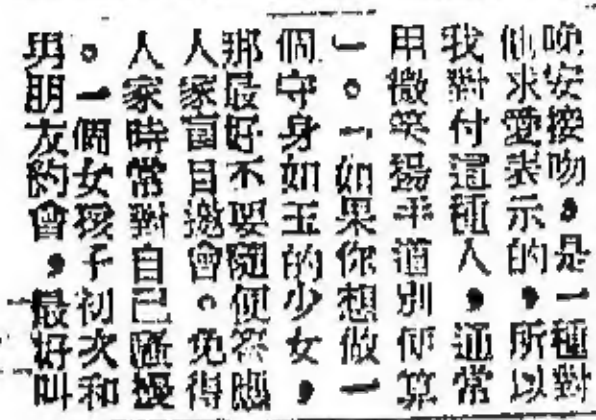 晚安接吻，是一種對
他求愛表示的，所以
我對付這種人，通常
用微笑揚手道別便算
了。「如果你想做一
個守身如玉的少女，
那最好不要隨便答應
人家盲目邀會。免得
人家時常對自己騷擾
。一個女孩子初次和
男朋友約會，最好叫